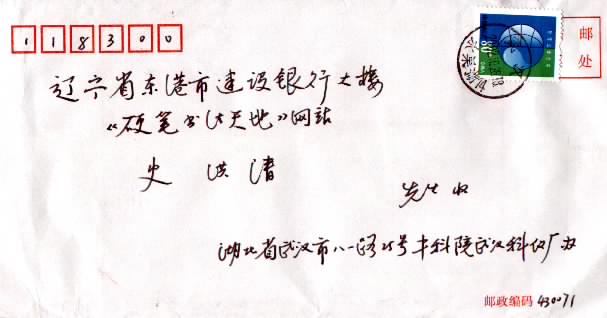 118300
邮
处
辽宁省东港市建设银行大楼
《硬笔书法天地》网站
史洪清
先生收
湖北省武汉市八一路25号中科院武汉科仪厂
邮政编码 430071